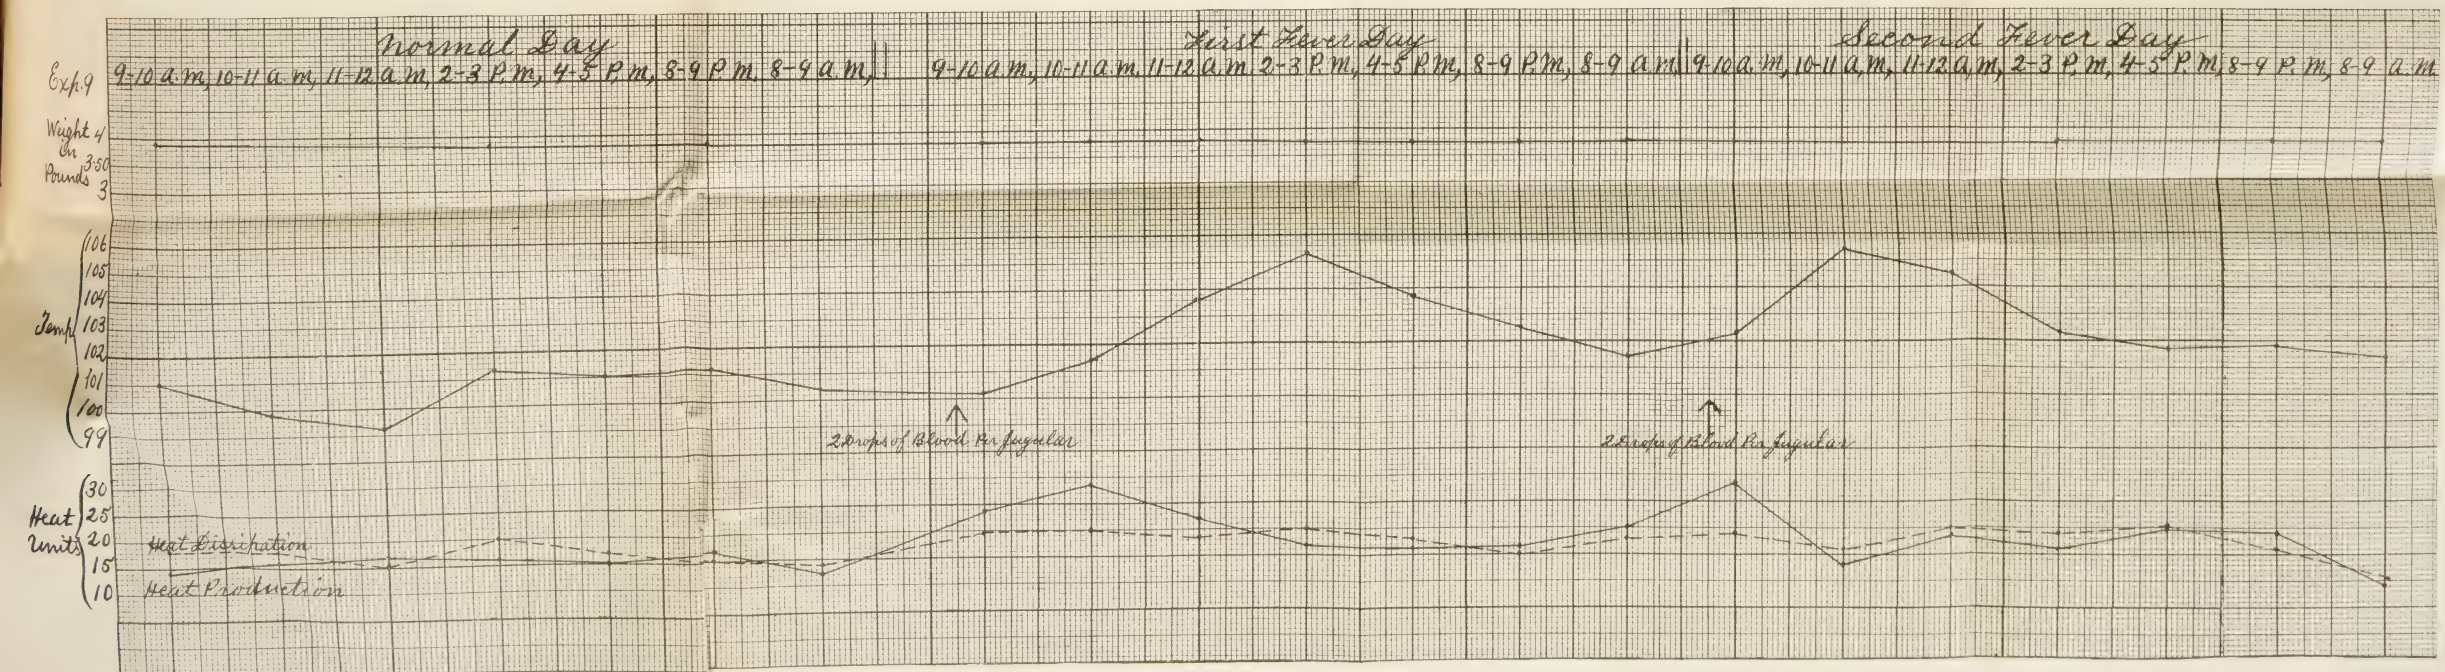 Normal Day First Fever Day Second Fever Day
Exp. 9 9-10 a.m, 10-11 a.m, 11-12 a.m, 2-3 P.m, 4-5 P.m, 8-9 P.m. 8-9 a.m, 9-10 a.m, 10-11 a.m, 11-12 a.m, 2-3 P.m, 4-5 P.m, 8-9 P.m, 8-9 a.m, 9-10 a.m, 10-11 a.m, 11-12 a.m, 2-3 P.m, 4-5 P.m, 8-9 P.m, 8-9 a.m
Weight 4
in
3.50
Pounds
3
106
105
104
Temp 103
102
101
100
99
2 Drops of Blood Per Jugular 2 Drops of Blood Per Jugular
30
Heat 25
Units 20 Heat Dissipation
15
10 Heat Production